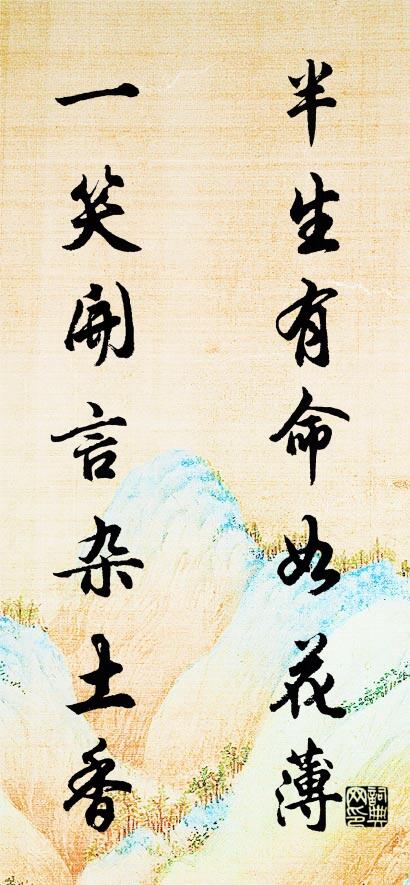 半生有命如花薄
一笑開言杂土香
詞典网印